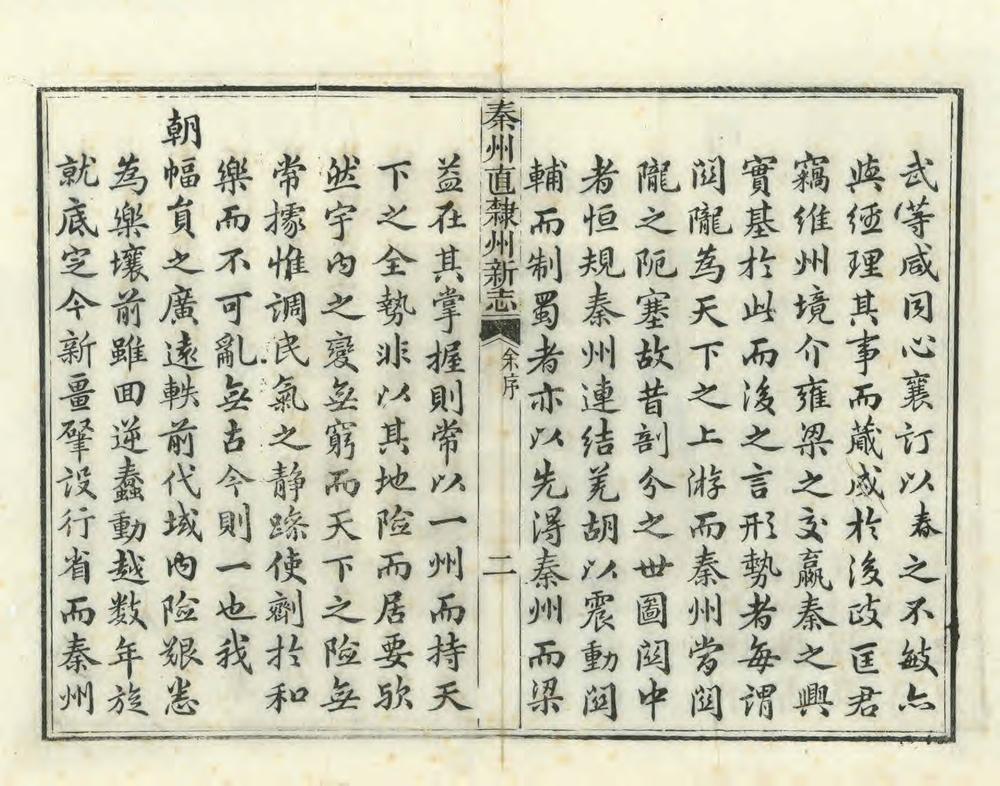 武等咸同心襄訂以春之不敏亦
與經理其事而蕆成於後政匡君
竊維州境介雍梁之交嬴秦之興
實基於此而後之言形勢者每謂
関隴為天下之上游而秦州當関
隴之阨塞故昔剖分之世圖関中
者恒規秦州連結羌胡以震動関
輔而制蜀者亦以先得秦州而梁
秦州直隸州新志
余序
二
益在其掌握則常以一州而持天
下之全勢非以其地險而居要歟
然宇內之變無窮而天下之險無
常據惟調民氣之靜躁使劑於和
樂而不可亂無古今則一也我
朝幅員之廣遠軼前代域內險艱悉
為樂壤前雖回逆蠢動越数年旋
就底定今新畺肇設行省而秦州